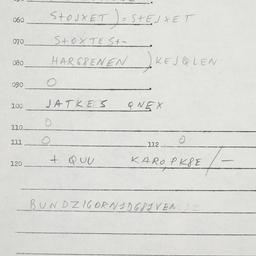 060 STOJXET ) = STEJXET
070 STOXTEST-
080 HARG8ENEN ) KEJQLEN
090 O
100 JATKES QNEX
110 O
111 O 112 O
120 + QUU KARO,PK8E/-
BUNDZIGORN1DG81VEN